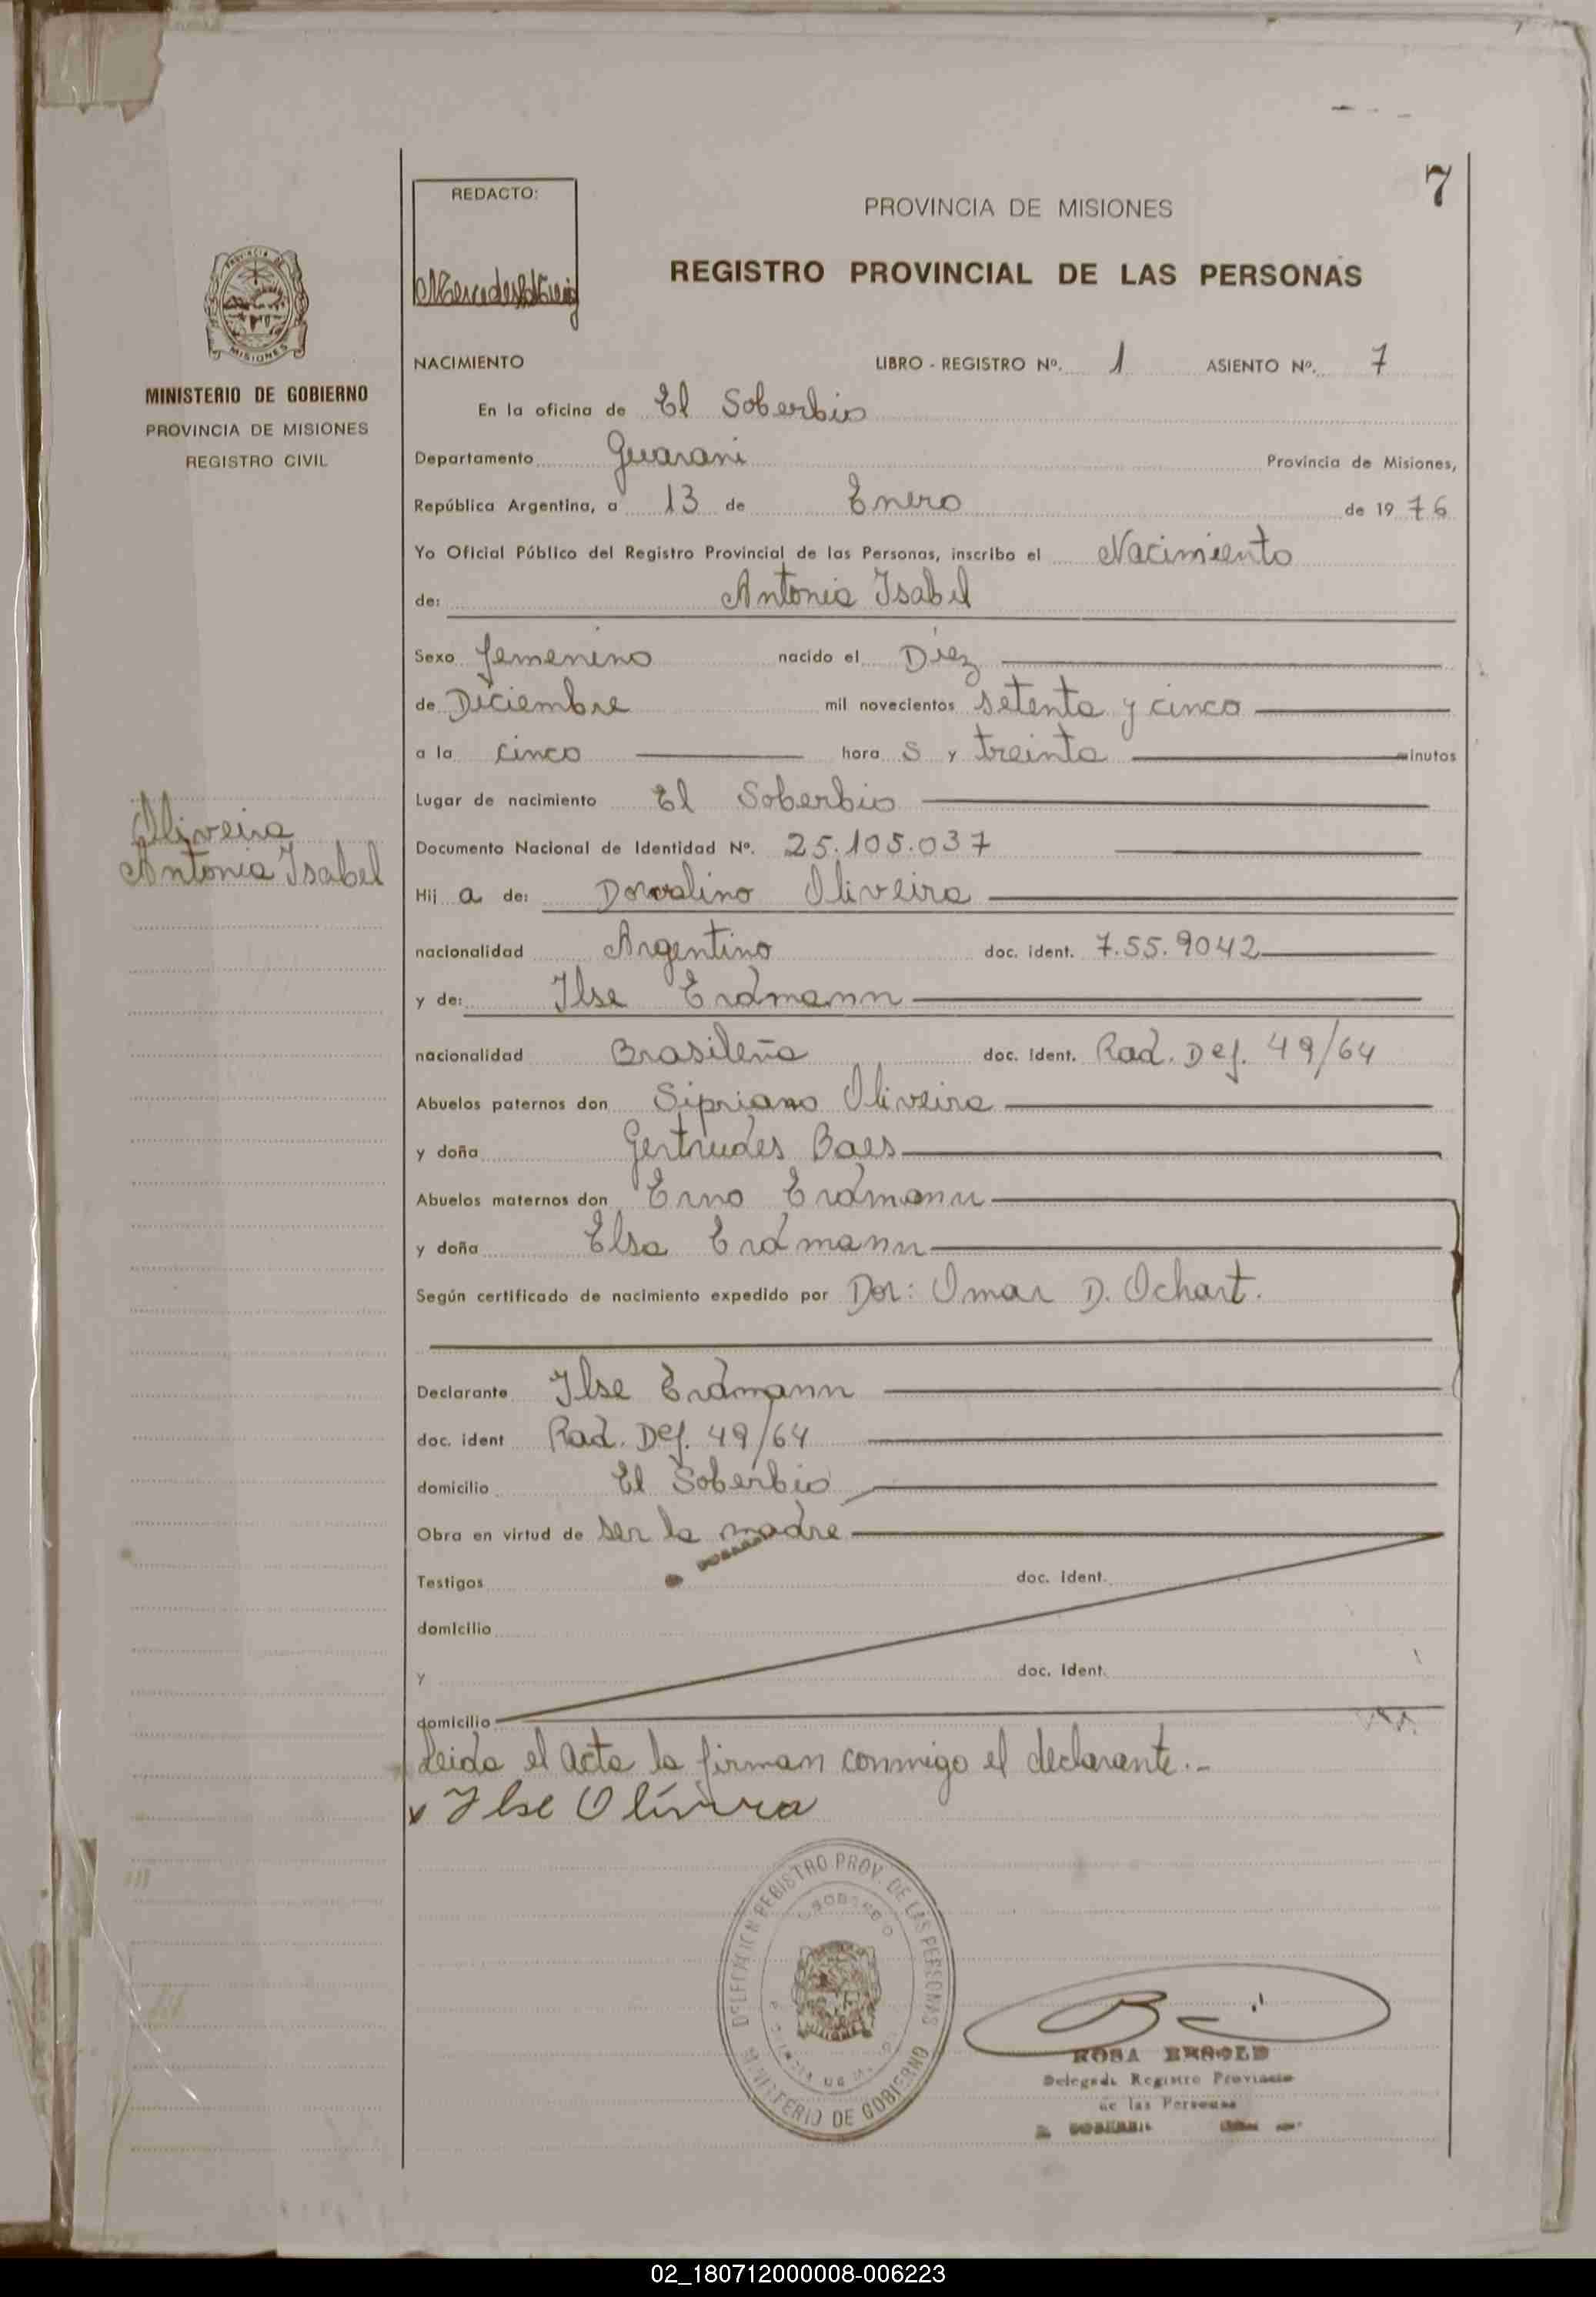 7
REDACTO:
PROVINCIA DE MISIONES
REGISTRO PROVINCIAL DE LAS PERSONAS
MISIONES
MINISTERIO DE GOBIERNO
PROVINCIA DE MISIONES
REGISTRO CIVIL
NACIMIENTO LIBRO - REGISTRO Nº. 1 ASIENTO Nº. 7
En la oficina de El Soberbio
Departamento Guarani Provincia de Misiones,
República Argentina, a 13 de Enero de 1976
Yo Oficial Público del Registro Provincial de las Personas, inscribo el Nacimiento
de: Antonia Isabel
Sexo femenino nacido el Diez
de Diciembre mil novecientos setenta y cinco
a la cinco hora s y treinta minutos
Lugar de nacimiento El Soberbio
Oliveira
Antonia Isabel
Documento Nacional de Identidad Nº. 25.105.037
Hij a de: Dorvalino Oliveira
nacionalidad Argentino doc. ident. 7.55.9042
y de: Ilse Erdmann
nacionalidad Brasileña doc. ident. Rad. Def. 49/64
Abuelos paternos don Sipriano Oliveira
y doña Gertrudes Baes
Abuelos maternos don Erno Erdmann
y doña Elsa Erdmann
Según certificado de nacimiento expedido por Dor: Omar D. Ochart.
Declarante Ilse Erdmann
doc. ident Rad. Def. 49/64
domicilio El Soberbio
Obra en virtud de ser la madre
Testigos doc. ident.
domicilio
y doc. ident.
domicilio
Leida el acta la firman conmigo el declarante.-
x Ilse Olivira
REGISTRO PROV. DE LAS PERSONAS
MINISTERIO DE GOBIERNO
ROSA
Delegada Registro Provincia
de las Personas
02_180712000008-006223